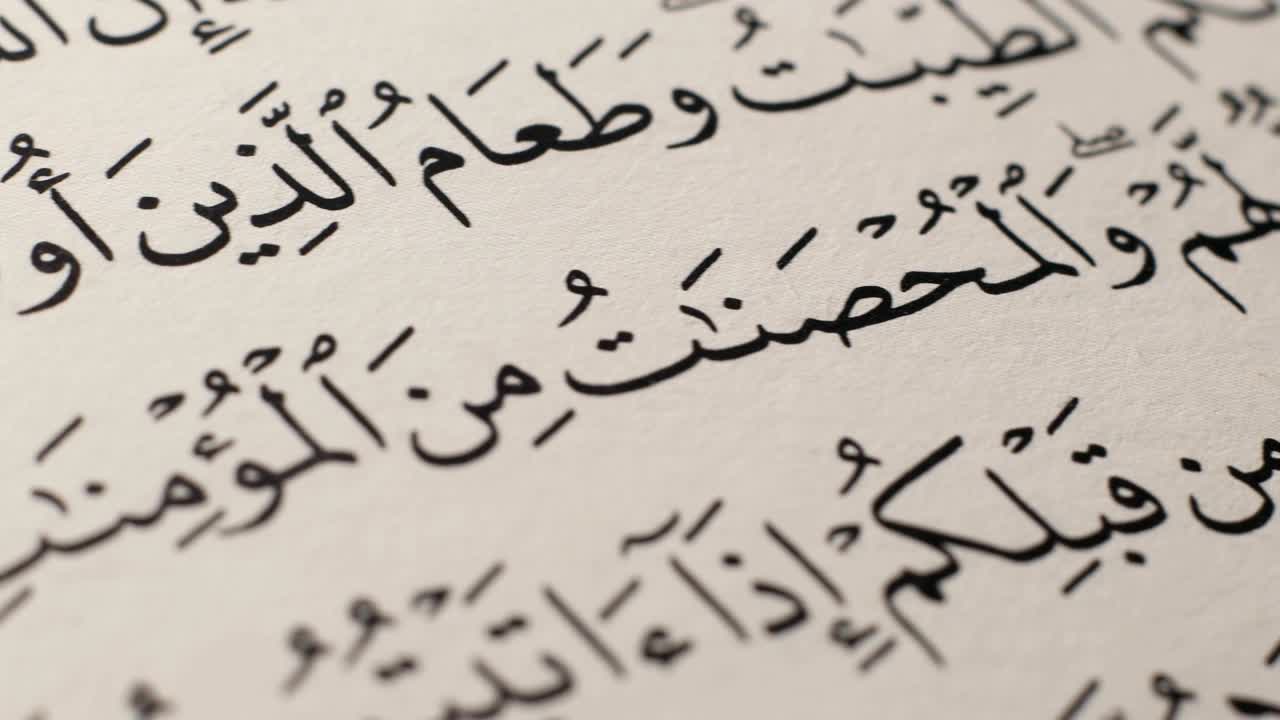 إِنَّ
ٱلطَّيِّبَٰتُ وَطَعَامُ ٱلَّذِينَ أُو
لَّهُمْ ۖ وَٱلْمُحْصَنَٰتُ مِنَ ٱلْمُؤْمِنَٰتِ
مِن قَبْلِكُمْ إِذَآ ءَاتَيْتُمُ